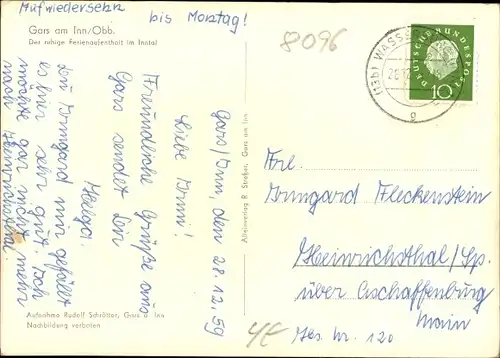 Aufwiedersehn
bis Montag!
Gars am Inn/Obb.
Der ruhige Ferienaufenthalt im Inntal
8096
(13b) WASSERBURG
DEUTSCHE BUNDESPOST
10
g
Gars/Inn, den 28.12.59
Liebe Irmi!
Freundliche Grüße aus
Gars sendet Dir
Helga.
Du Irmgard mir gefällt
es hier sehr gut. Ich
möchte gar nicht mehr
nach Heinrichsthal.
Alleinverlag R. Straßer, Gars am Inn
Frl.
Irmgard Fleckenstein
Heinrichsthal/Sp.
über Aschaffenburg
Main
Hs. Nr. 120
4E
Aufnahme Rudolf Schrötter, Gars a. Inn
Nachbildung verboten